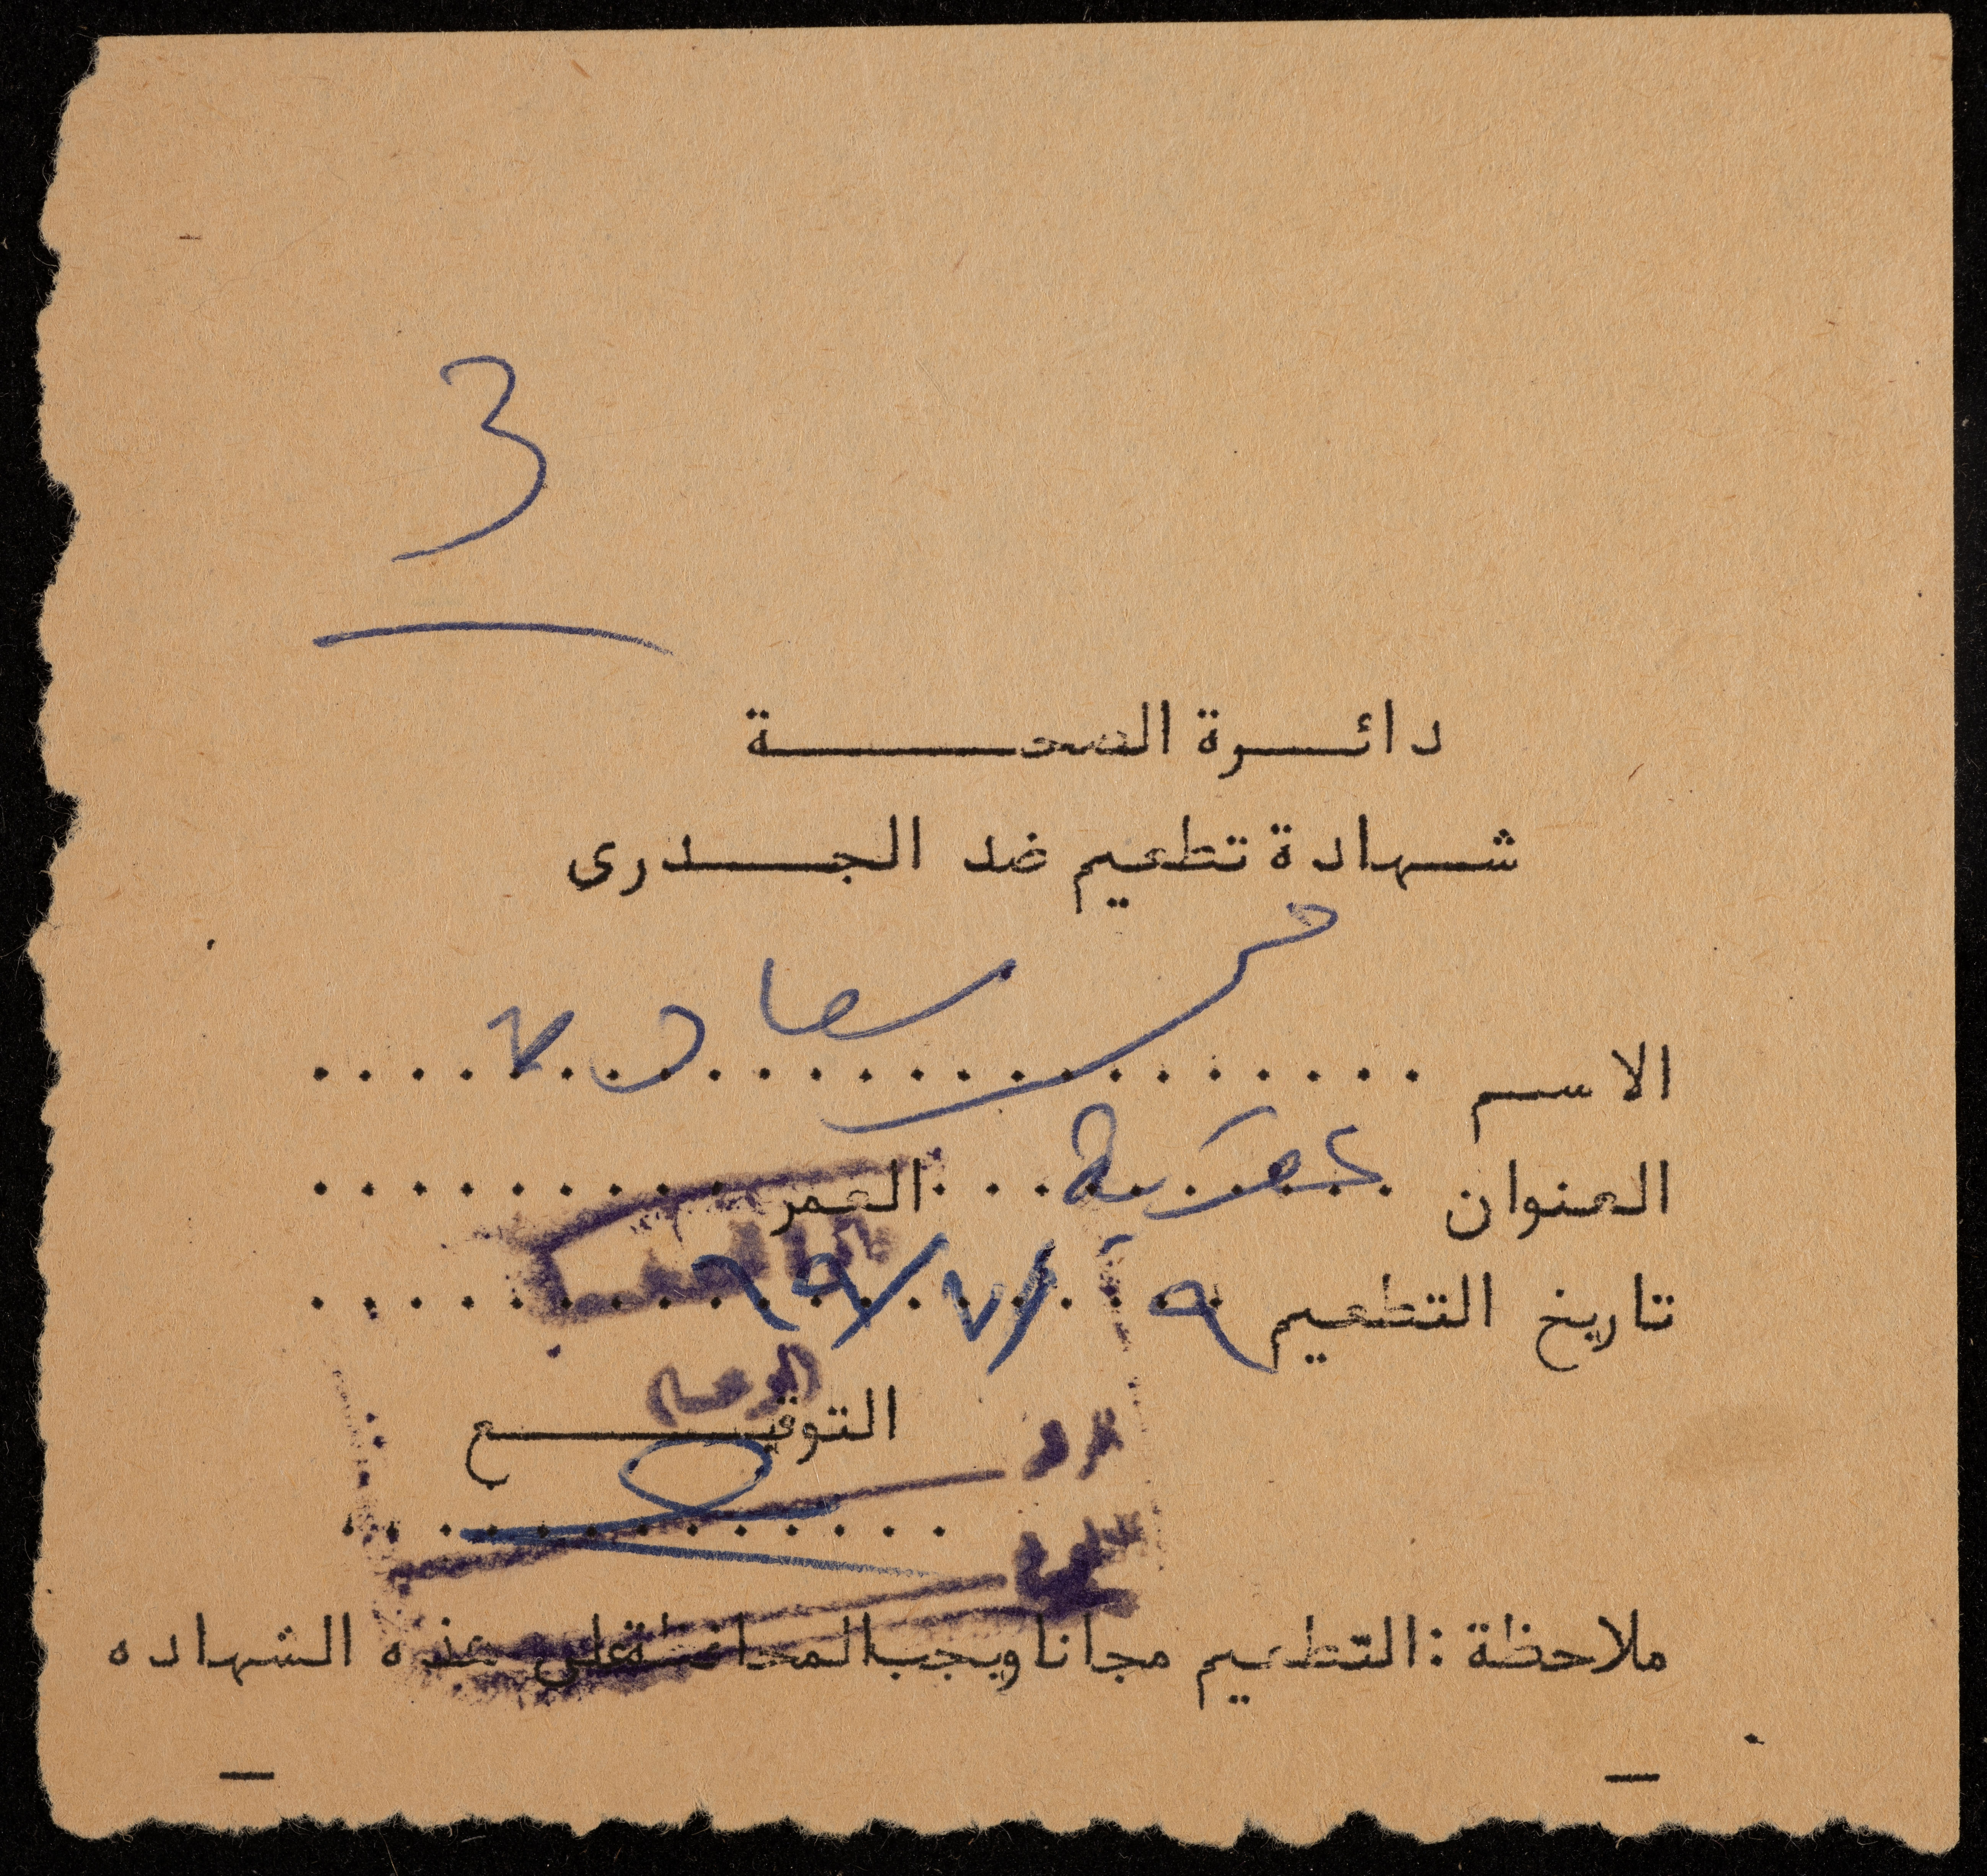 3
دائرة الصحة
شهادة تطعيم ضد الجدرى
الاسم سعاد
العنوان العمر
تاريخ التطعيم ٩/٧/٦٩
التوقيع
ملاحظة : التطعيم مجانا ويجب المحافظة على هذه الشهاده